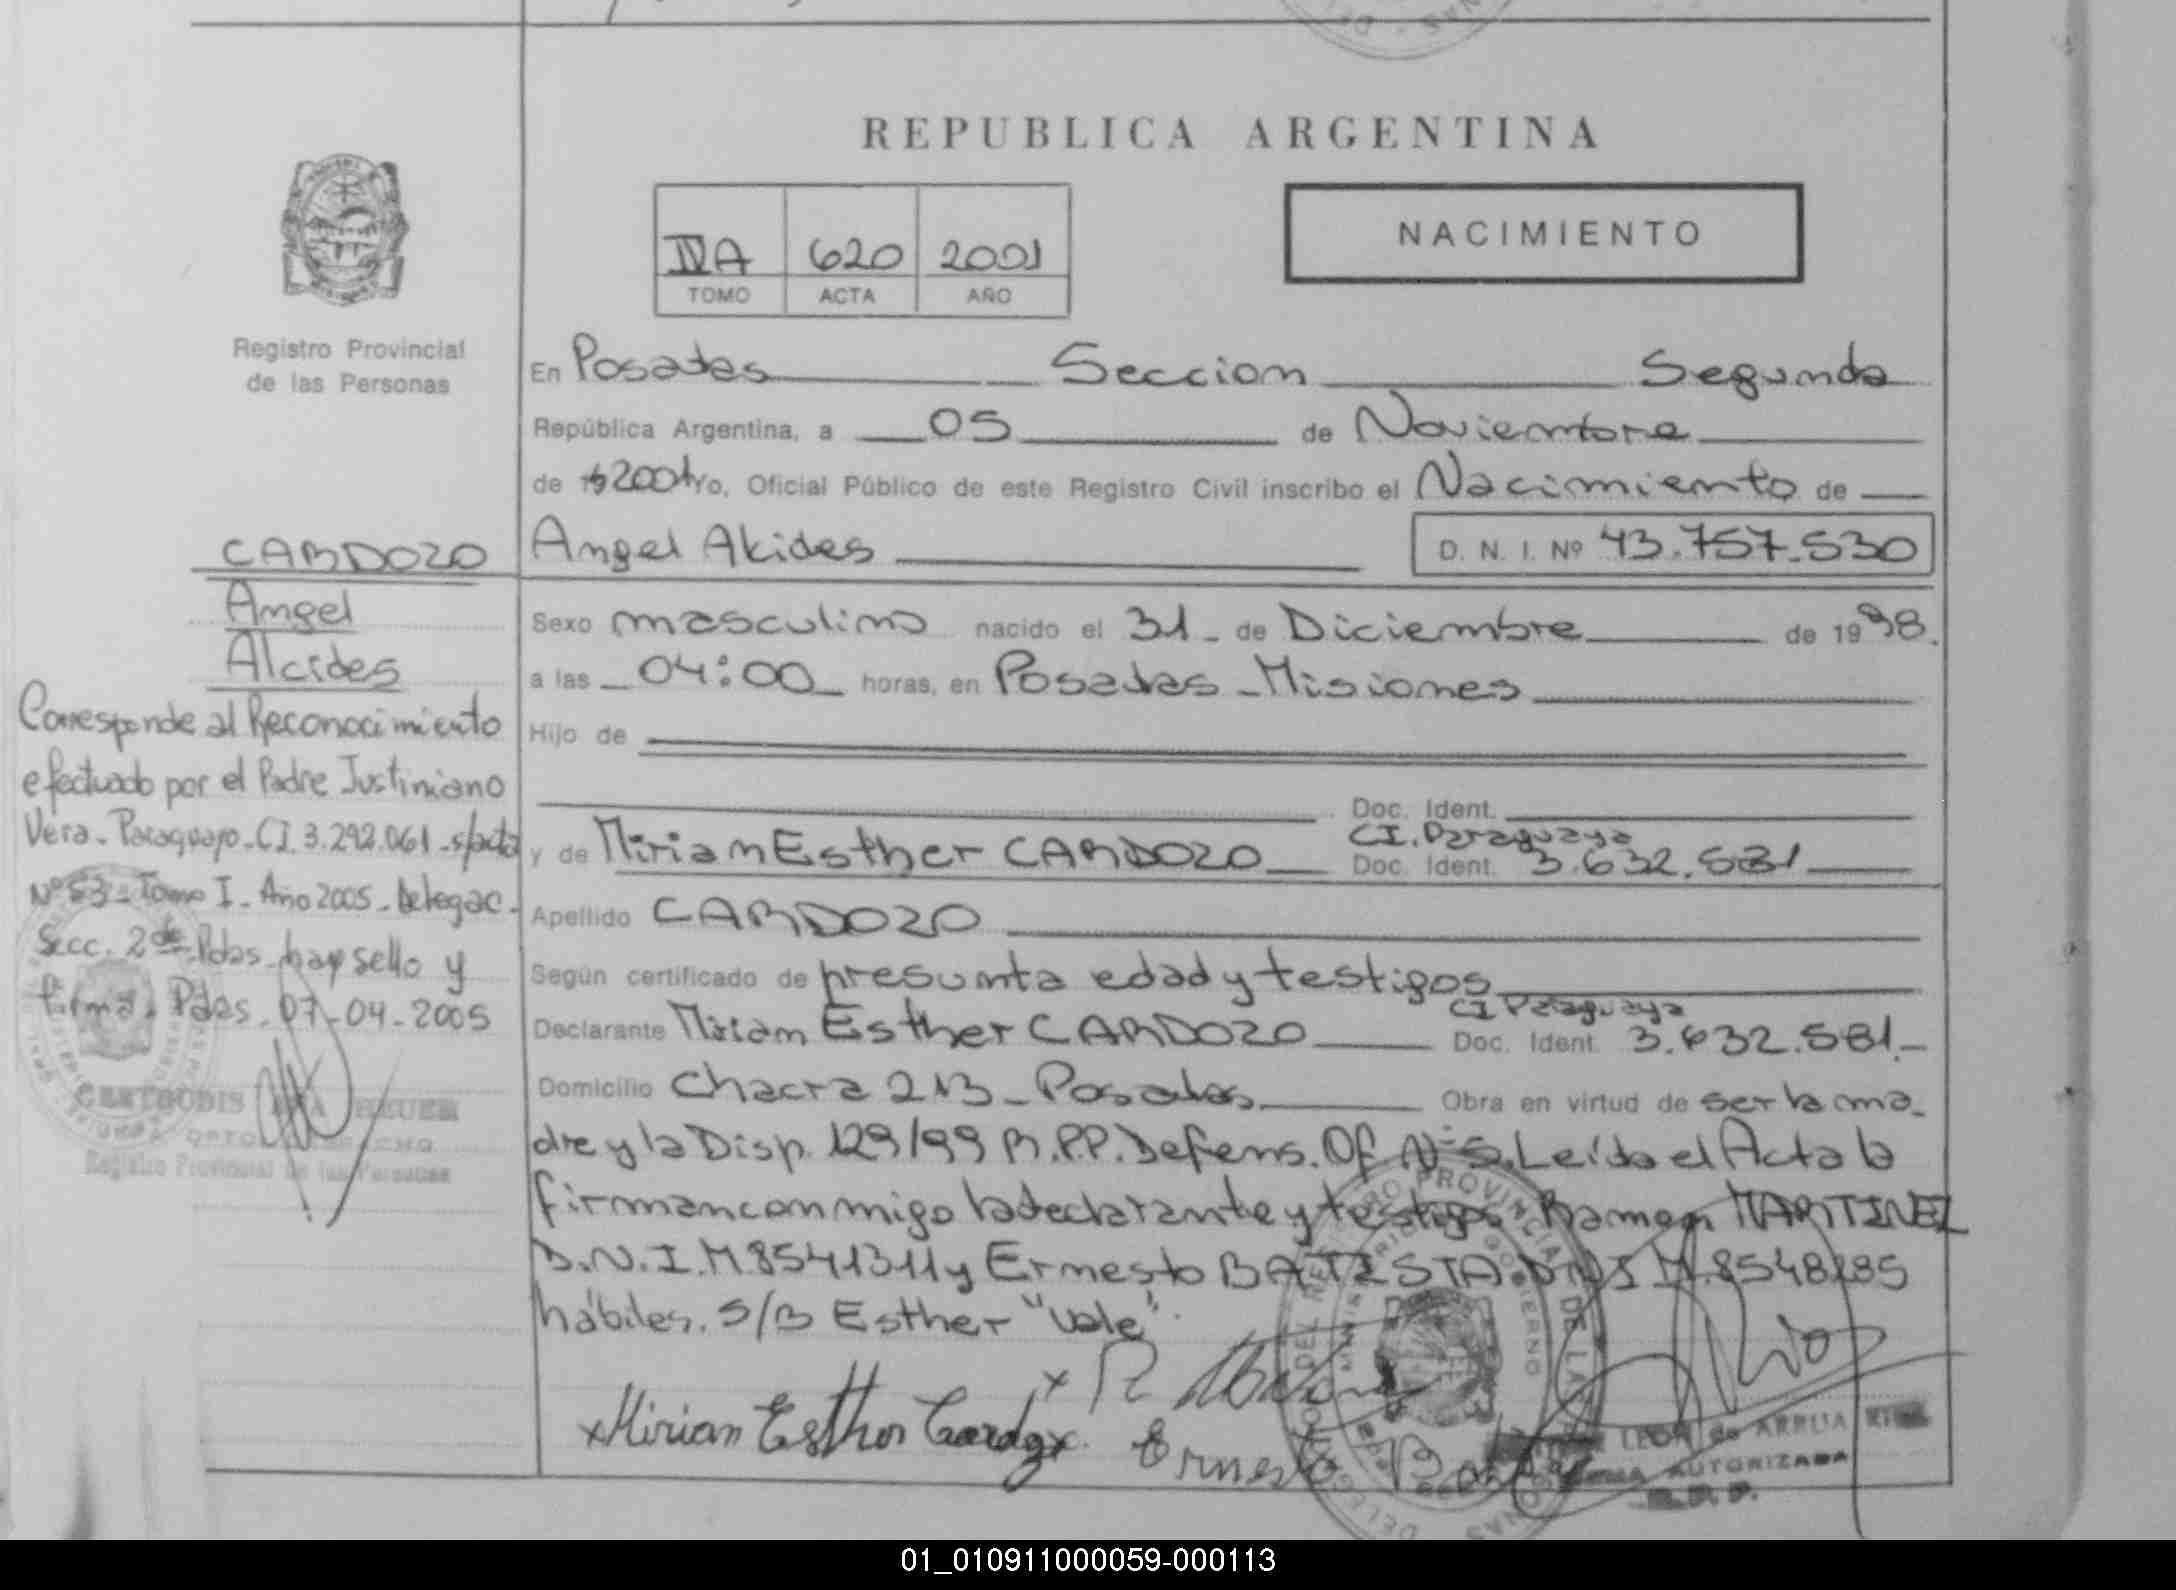 REPUBLICA ARGENTINA
NACIMIENTO
IVA 620 2001
TOMO ACTA AÑO
Registro Provincial
de las Personas
En Posadas Seccion Segunda
República Argentina, a 05 de Noviembre
de 2001 yo, Oficial Público de este Registro Civil inscribo el Nacimiento de
Angel Alcides D. N. I. Nº 43.757.530
Sexo masculino nacido el 31 de Diciembre de 1998.
a las 04:00 horas, en Posadas - Misiones
Hijo de
Doc. Ident.
CI. Paraguaya
y de Mirian Esther CARDOZO Doc. Ident. 3.632.581
Apellido CARDOZO
Según certificado de presunta edad y testigos
CI Paraguaya
Declarante Mirian Esther CARDOZO Doc. Ident. 3.632.581.-
Domicilio Chacra 213 - Posadas Obra en virtud de ser la ma-
dre y la Disp. 129/99 R.P.P. Defens. Of. Nº 5. Leída el Acta la
firman conmigo la declarante y testigos Ramon MARTINEZ
D.N.I.M.8541311 y Ernesto BATISTA DNI M.8548285
hábiles. S/B Esther "Vale".
CARDOZO
Angel
Alcides
Corresponde al Reconocimiento
efectuado por el Padre Justiniano
Vera - Paraguayo - CI. 3.292.061 - s/acta
Nº 53 - Tomo I - Año 2005 - Delegac.
Secc. 2da Pdas. hay sello y
firma. Pdas. 07-04-2005
Registro Provincial de las Personas
x Mirian Esther Cardozo
Ernesto
LEON de ARRUA
AUTORIZADA
01_010911000059-000113